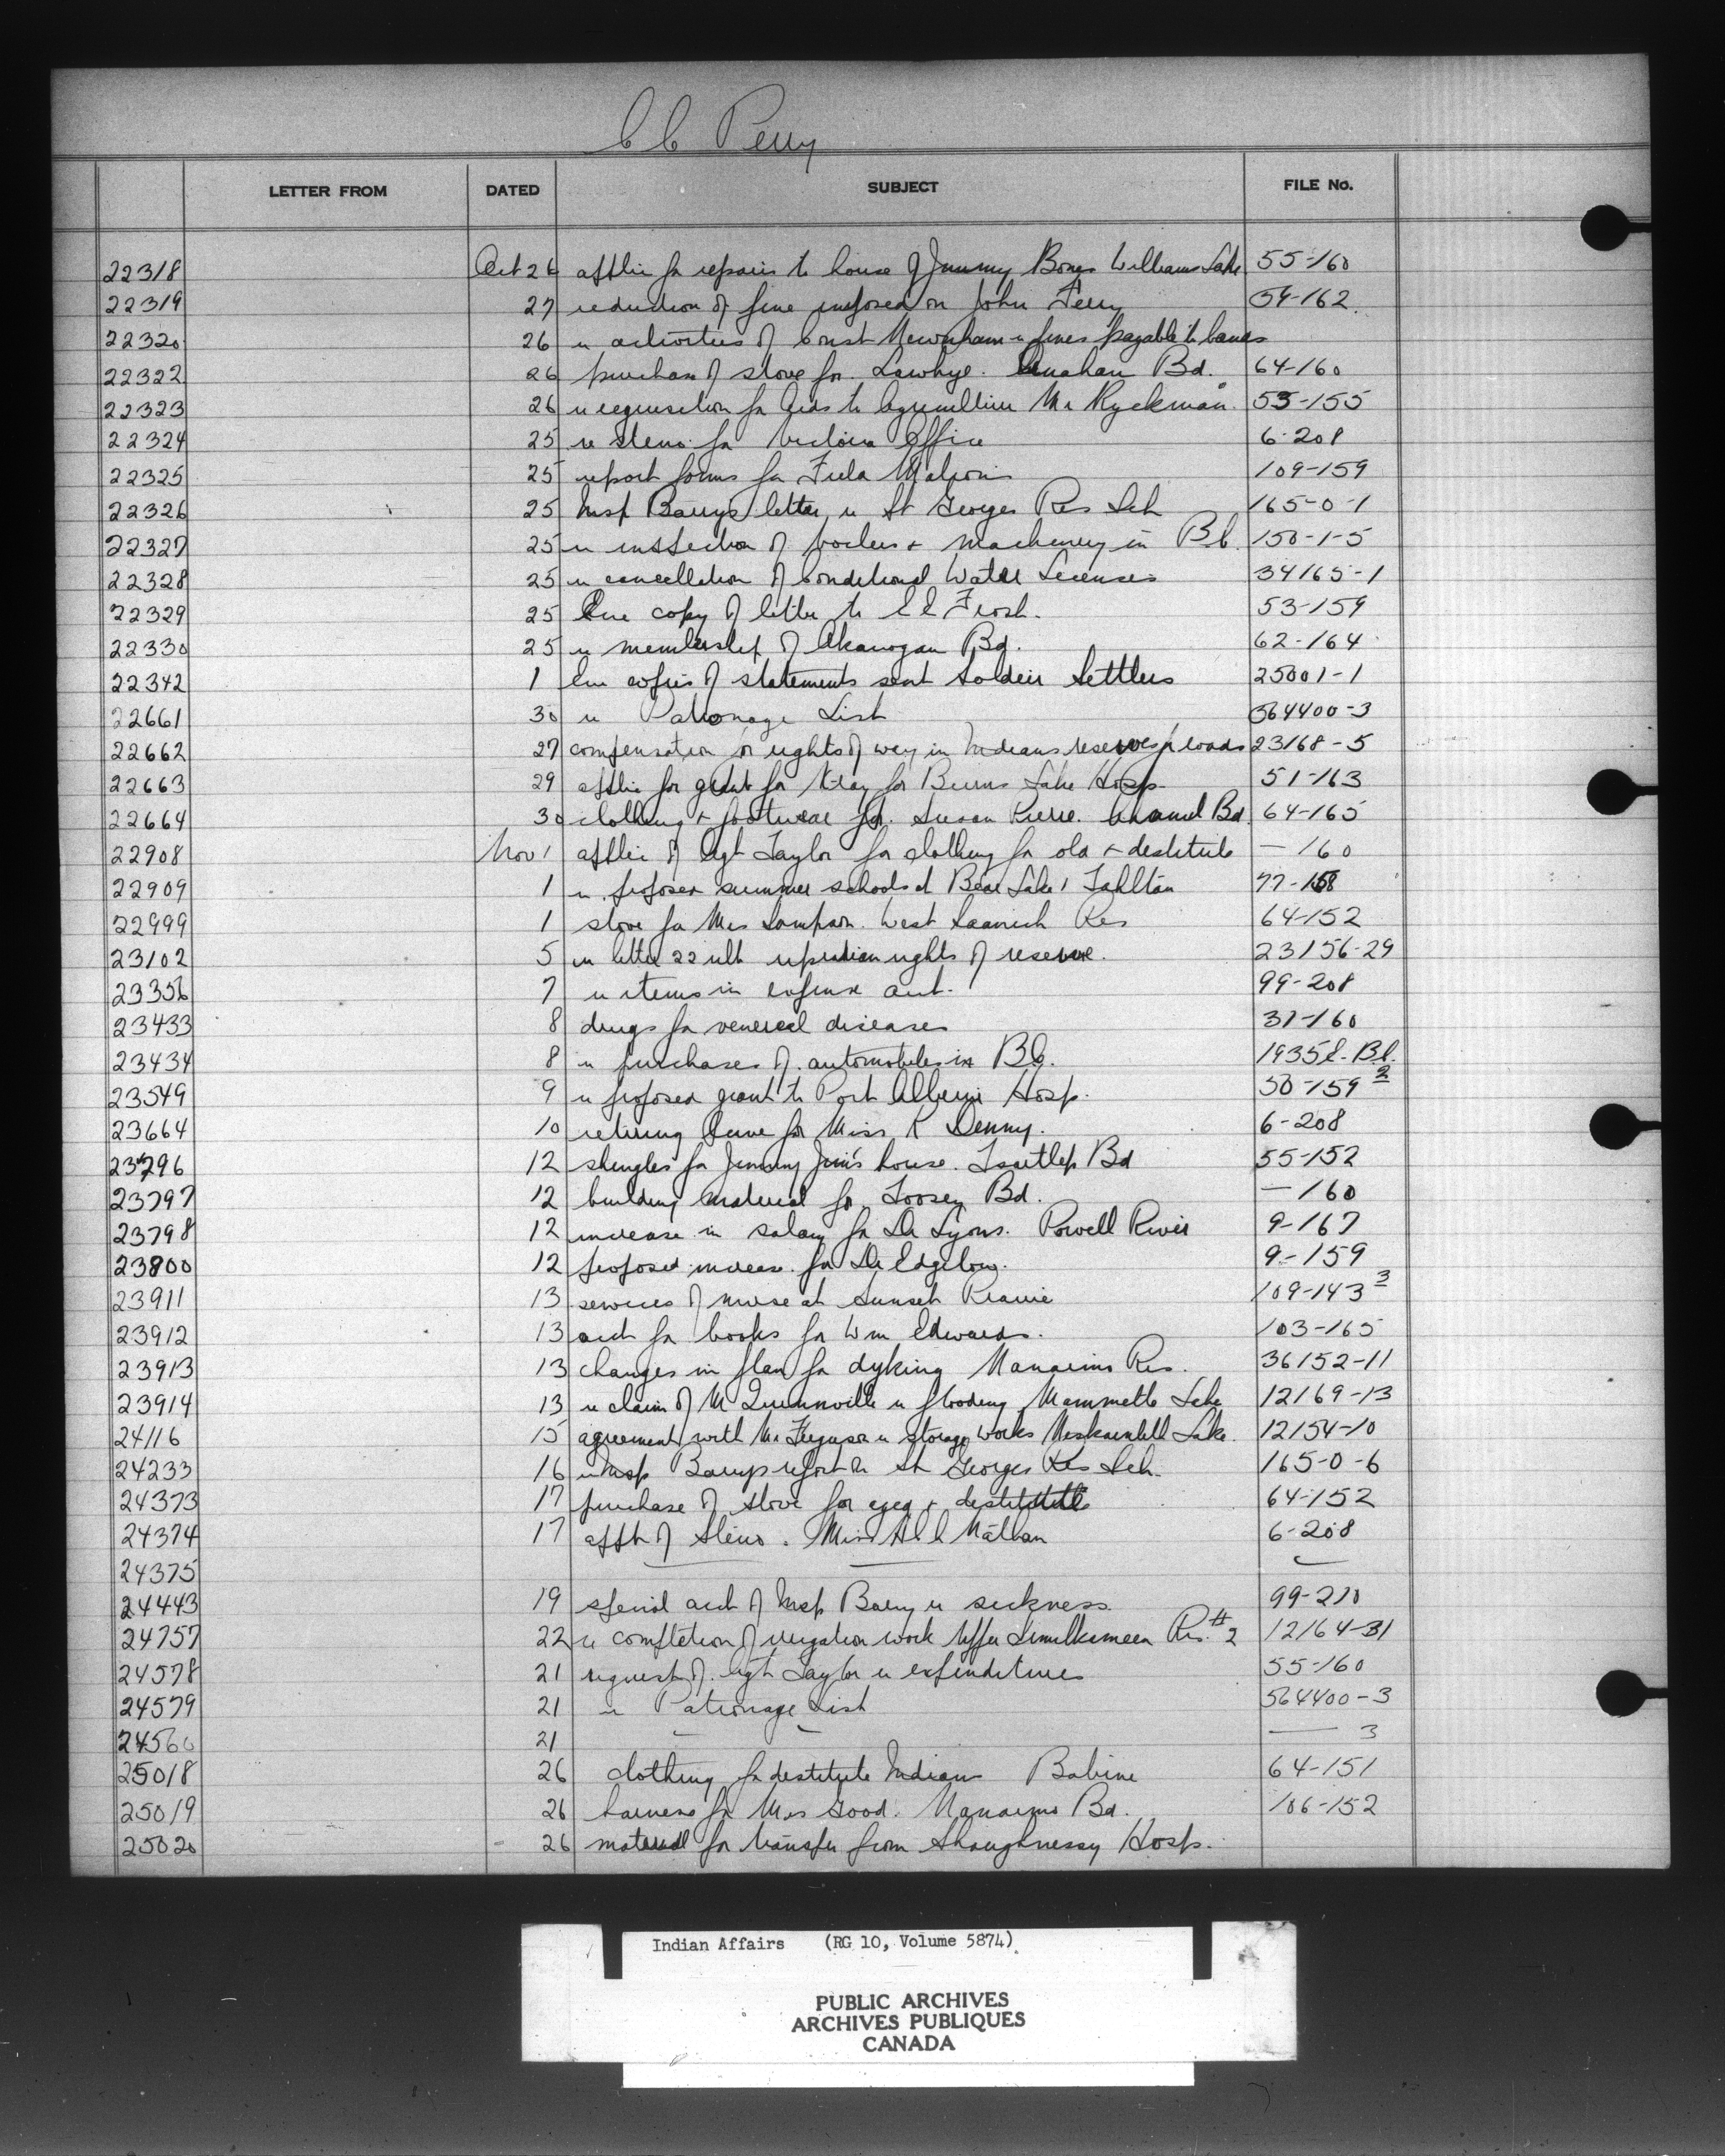 C C Perry
LETTER FROM DATED SUBJECT FILE No.
22318 Oct 26 applic for repairs to house of Jimmy Bones Williams Lake 55-160
22319 27 reduction of fine imposed on John Terry 54-162
22320 26 re activities of Const Newnham re fines payable to bands
22322 26 purchase of stove for Bd. 64-160
22323 26 re requisition for Aids to Agriculture Mr Ryckman 55-155
22324 25 re steno for Victoria Office 6-208
22325 25 report forms for Field Matrons 109-159
22326 25 Insp Barry's letter re St Georges Res Sch 165-0-1
22327 25 re inspection of boilers + machinery in B.C. 150-1-5
22328 25 re cancellation of Conditional Water Licenses 34165-1
22329 25 Enc copy of letter to Frost. 53-159
22330 25 re membership of Okanogan Bd. 62-164
22342 1 Enc copies of statements sent Soldier Settlers 25001-1
22661 30 re Patronage List 564400-3
22662 27 compensation for rights of way in Indians reserves for roads 23168-5
22663 29 applic for grant for X-ray for Burns Lake Hosp 51-163
22664 30 clothing + footwear for Susan Pierre. Bd. 64-165
22908 Nov 1 applic of Agt Taylor for clothing for old + destitute — 160
22909 1 re proposed summer schools at Bear Lake, Tahltan 77-158
22999 1 stove for Mrs Sampson. West Saanich Res 64-152
23102 5 re letter 22 ult re riparian rights of reserve. 23156-29
23356 7 re items in expense acct. 99-208
23433 8 drugs for venereal diseases 37-160
23434 8 re purchases of automobiles in BC.
23549 9 re proposed grant to Port Alberni Hosp. 50-159 2
23664 10 retiring leave for Miss K Denny. 6-208
23796 12 shingles for Jimmy Jim's house. Tsartlep Bd 55-152
23797 12 building material for Toosey Bd. — 160
23798 12 increase in salary for Dr Lyons. Powell River 9-167
23800 12 proposed increase for Dr Edgelow. 9-159
23911 13 services of nurse at Sunset Prairie 109-143 3
23912 13 acct for books for Wm Edwards. 103-165
23913 13 changes in plan for dyking Nanaimo Res. 36152-11
23914 13 re claim of Mr Quennville re flooding Mammette Lake 12169-13
24116 15 agreement with Mr Ferguson re storage works Lake. 12154-10
24233 16 re Insp Barry's report on St Georges Res Sch. 165-0-6
24373 17 purchase of stove for aged + destitute 64-152
24374 17 appt of Steno. Miss Nathan 6-208
24375 — —
24443 19 special acct of Insp Barry re sickness 99-210
24757 22 re completion of irrigation work Upper Similkameen Res. #2 12164-31
24578 21 request of Agt Taylor re expenditures 55-160
24579 21 re Patronage List 564400-3
24560 21 — — — 3
25018 26 clothing for destitute Indians Babine 64-151
25019 26 harness for Mrs Good. Nanaimo Bd. 106-152
25020 26 material for transfer from Shaughnessy Hosp.
Indian Affairs (RG 10, Volume 5874)
PUBLIC ARCHIVES
ARCHIVES PUBLIQUES
CANADA